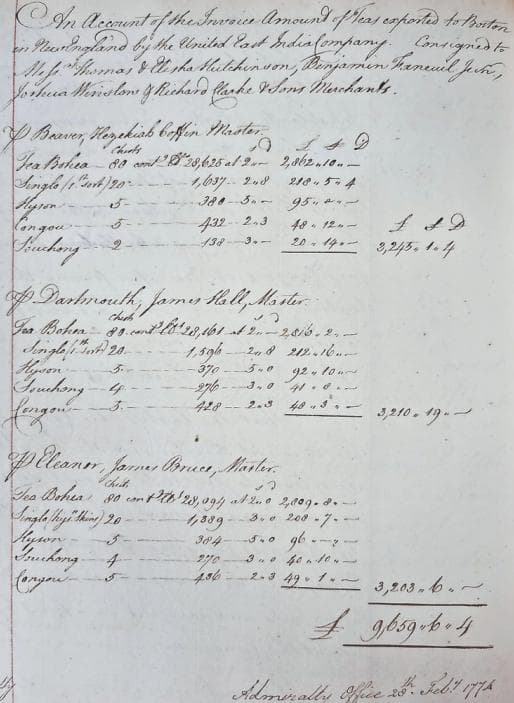 An Account of the Invoice Amount of Teas exported to Boston
in New England by the United East India Company. Consigned to
Mess.rs Thomas & Elisha Hutchinson, Benjamin Faneuil Jun.r,
Joshua Winslow & Richard Clarke & Sons Merchants.
⅌ Beaver, Hezekiah Coffin Master.
Chests s D £ s D
Tea Bohea — 80 cont.g lb 28,625 at 2 „ — 2,862 „ 10 „ —
Singlo (1st sort) 20 — 1,637 — 2 „ 8 218 „ 5 „ 4
Hyson — 5 — 380 — 5 „ — 95 „ „ —
Congou — 5 — 432 — 2 „ 3 48 „ 12 „ — £ s D
Souchong — 2 — 138 — 3 „ — 20 „ 14 „ — 3,245 „ 1 „ 4
⅌ Dartmouth, James Hall, Master.
Chests s D
Tea Bohea — 80 cont.g lb 28,161 at 2 „ — 2,816 „ 2 „ —
Singlo (1st sort) 20 — 1,596 — 2 „ 8 212 „ 16 „ —
Hyson — 5 — 370 — 5 „ 0 92 „ 10 „ —
Souchong — 4 — 276 — 3 „ 0 41 „ 8 „ —
Congou — 5 — 428 — 2 „ 3 48 „ 3 „ — 3,210 „ 19 „ —
⅌ Eleanor, James Bruce, Master.
Chests s D
Tea Bohea 80 cont.g lb 28,094 at 2 „ 0 2,809 „ 8 „ —
Singlo (Hys.n Skins) 20 — 1,389 — 3 „ 0 208 „ 7 „ —
Hyson — 5 — 384 — 5 „ 0 96 „ — „ —
Souchong — 4 — 270 — 3 „ 0 40 „ 10 „ —
Congou — 5 — 436 — 2 „ 3 49 „ 1 „ — 3,203 „ 6 „ —
£ 9,659 „ 6 „ 4
Admiralty Office 28th Feb.y 1774